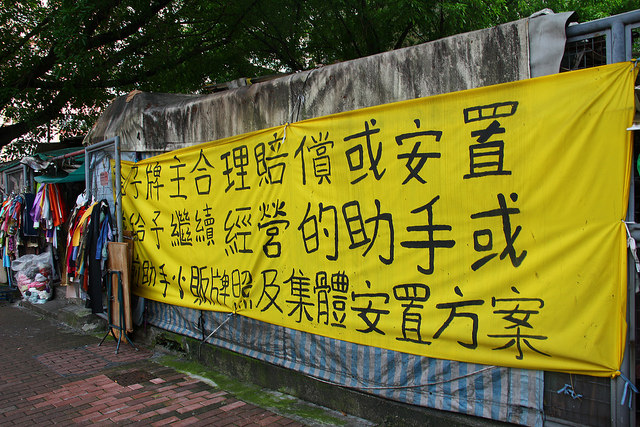 牌主合理賠償或安置
給予繼續經營的助手或
助手小販牌照及集體安置方案